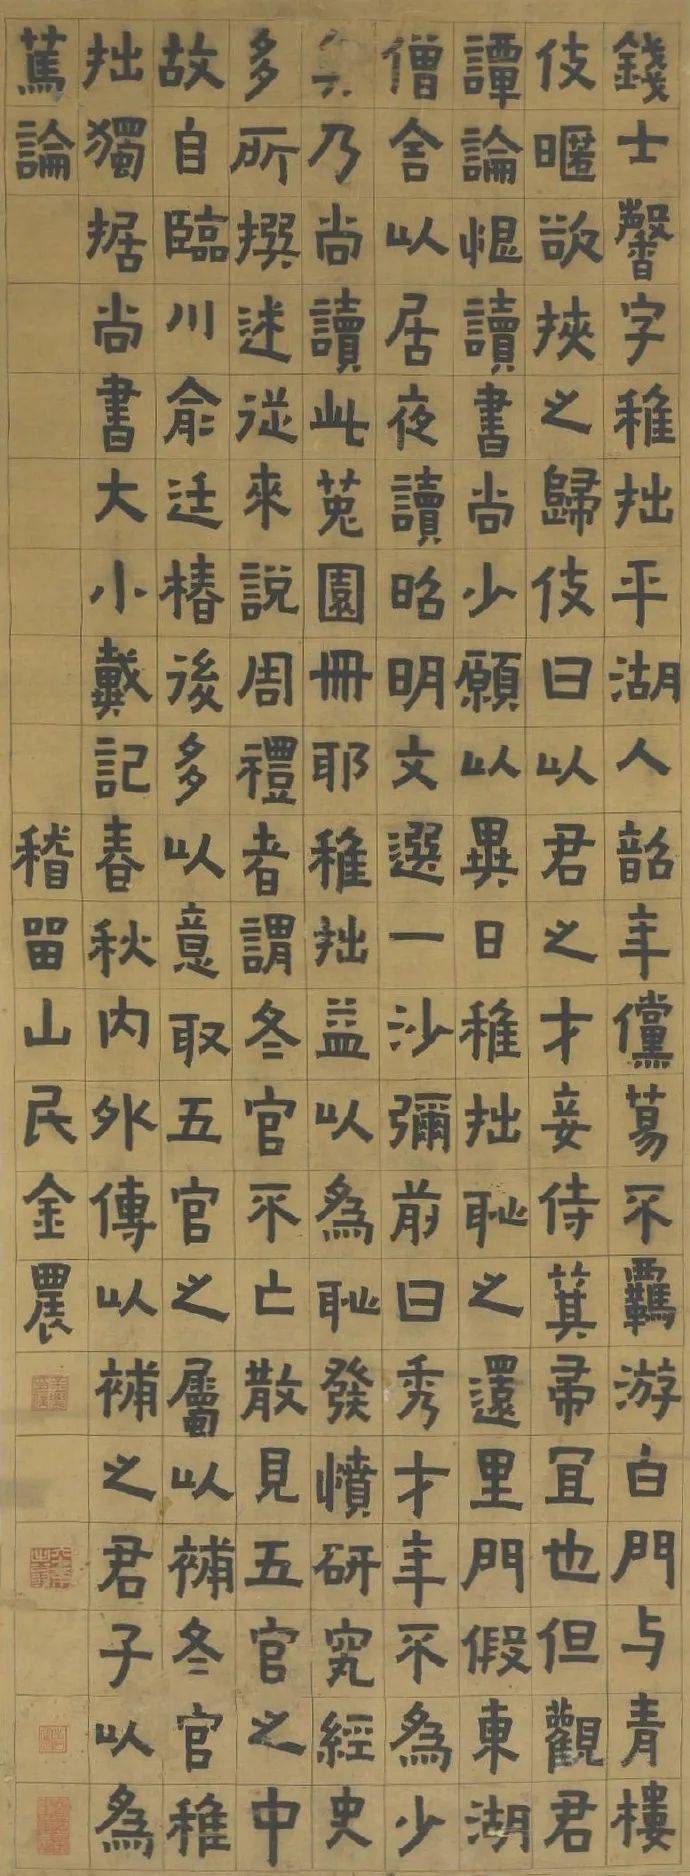 錢士馨字稚拙平湖人韶年儻蕩不羈游白門与青樓
伎暱欲挾之歸伎曰以君之才妾侍萁帚宜也但觀君
譚論恨讀書尚少願以異日稚拙恥之還里門假東湖
僧舍以居夜讀昭明文選一沙彌前曰秀才年不為少
矣乃尚讀此菟園冊耶稚拙益以為恥發憤研究經史
多所撰述從來說周禮者謂冬官不亡散見五官之中
故自臨川俞廷椿後多以意取五官之屬以補冬官稚
拙獨据尚書大小戴記春秋内外傳以補之君子以為
篤論 稽留山民金農